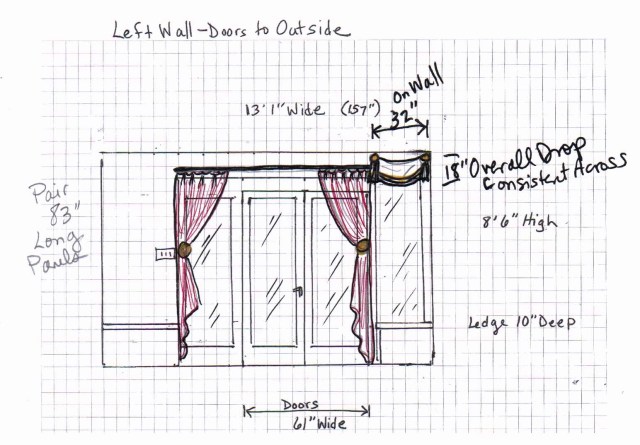 Left Wall-Doors to Outside
13'1" Wide (157")
on Wall
32"
18" Overall Drop
Consistent Across
Pair
83"
Long
Panels
8'6" High
Ledge 10" Deep
Doors
61" Wide